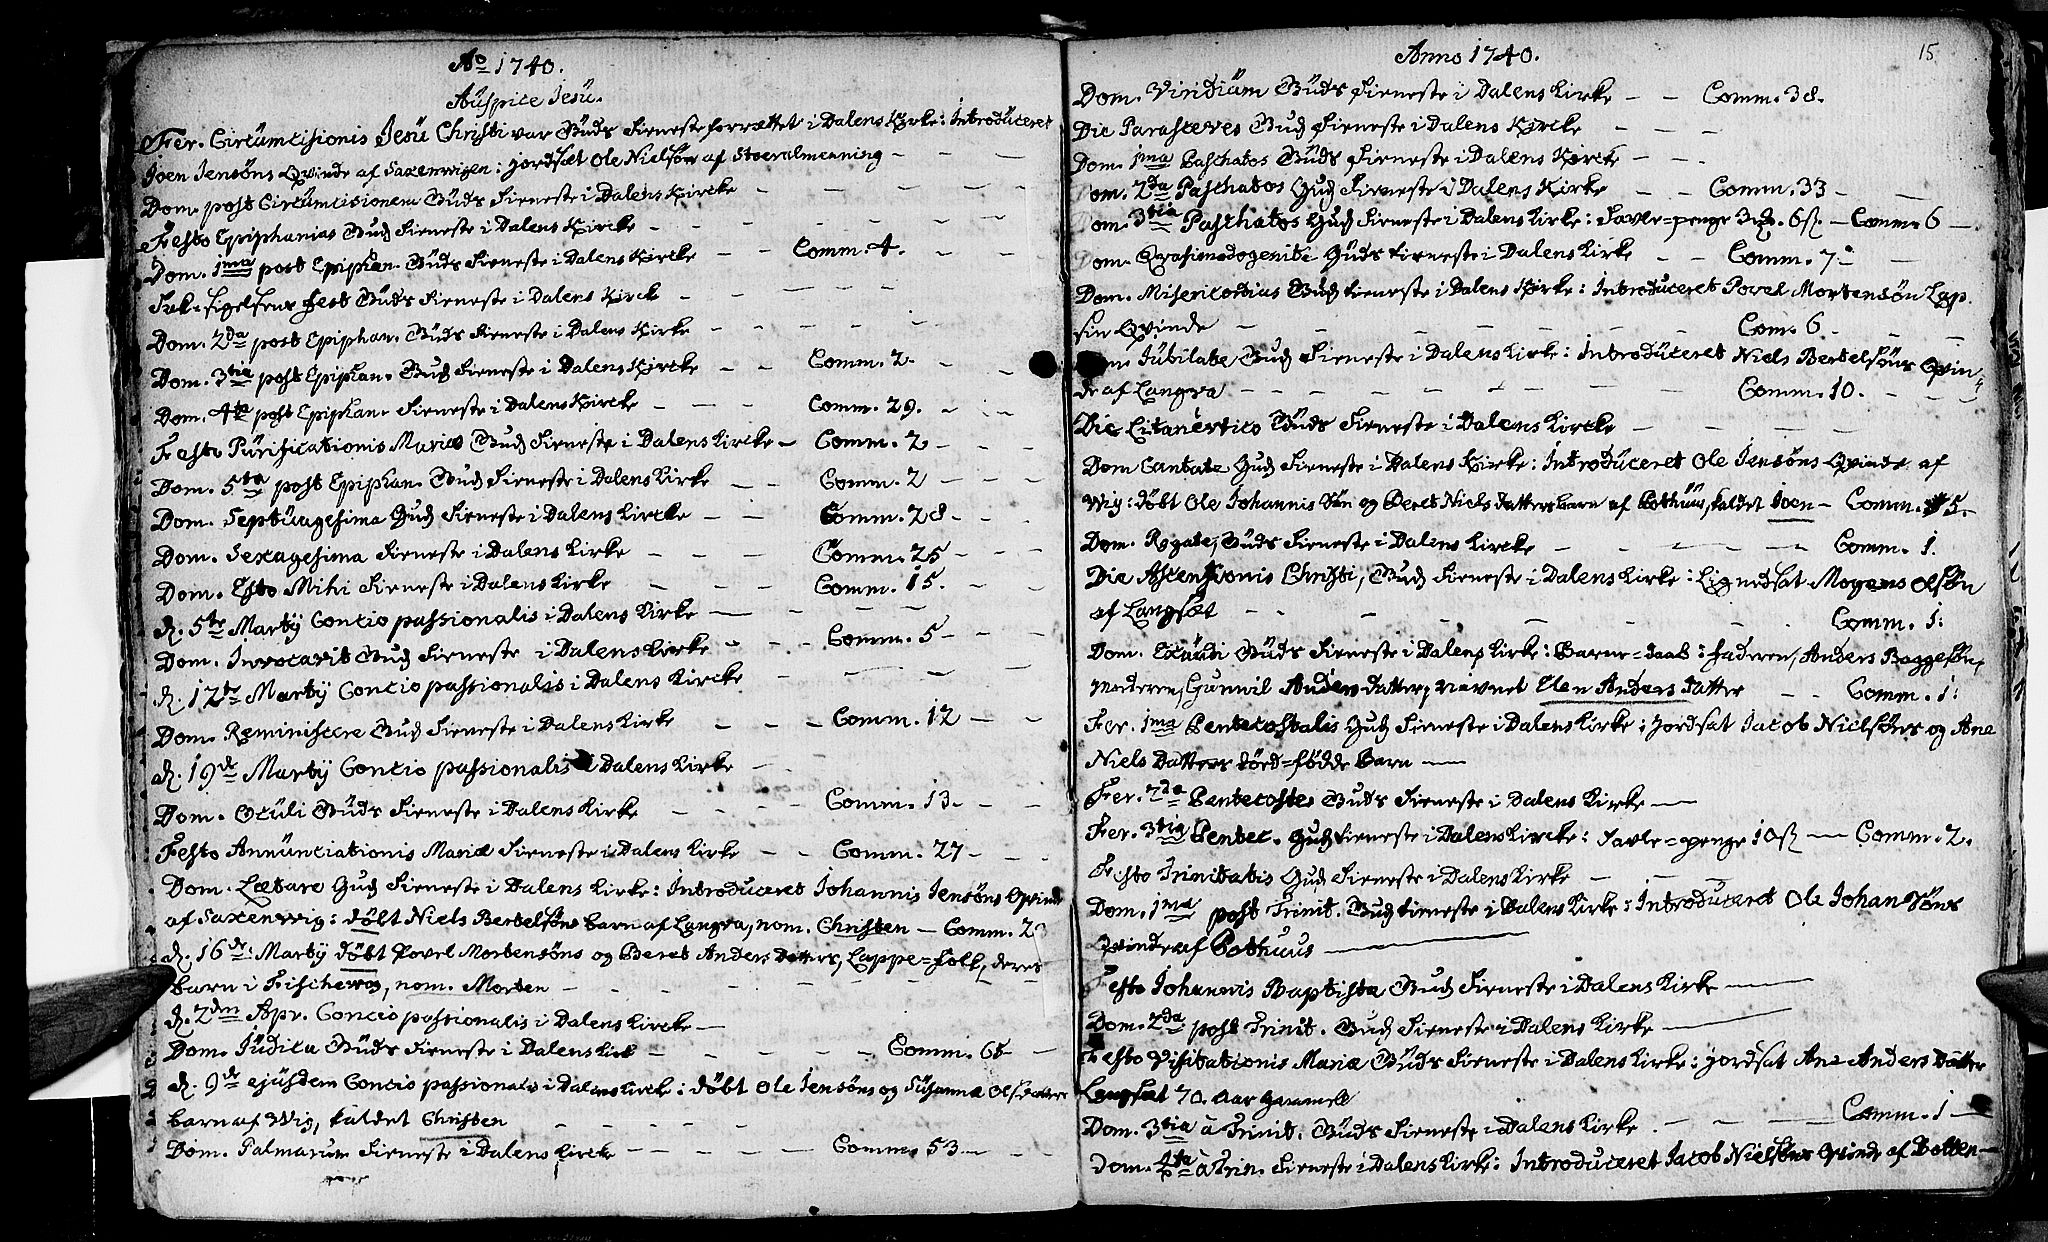 Ao 1740.
Auspice Jesu.
Fer. Circumcisionis Jesu Christi var Guds Tieneste forrættet i Dalens Kirke: Introduceret
Joen Jensøns Qvinde af Saxenvigen: jordsat Ole Nielsøn af Stoeralmenning
Dom. post Circumcisionem Guds Tieneste i Dalens Kircke
Festo Epiphanias Guds Tieneste i Dalens Kircke
Dom. 1ma post Epiphan. Guds Tieneste i Dalens Kircke – – Comm. 4.
Fest Guds Tieneste i Dalens Kirck
Dom. 2da post Epiphan. Guds Tieneste i Dalens Kirke
Dom. 3tia post Epiphan. Guds Tieneste i Dalens Kircke – – Comm. 2
Dom. 4ta post Epiphan. Tieneste i Dalens Kircke – – – Comm. 29.
Festo Purificationis Mariæ Guds Tieneste i Dalens Kircke – Comm. 2
Dom. 5ta post Epiphan. Guds Tieneste i Dalens Kirke – – Comm. 2
Dom. Septuagesima Guds Tieneste i Dalens Kircke – – Comm. 28
Dom. Sexagesima Tieneste i Dalens Kirke – – – Comm. 25
Dom. Esto Mihi Tieneste i Dalens Kirke – – – Comm. 15.
d. 5te Martij Concio passionalis i Dalens Kirke
Dom. Invocavit Guds Tieneste i Dalens Kirke – – – Comm. 5
d. 12te Martij Concio passionalis i Dalens Kircke
Dom. Reminiscere Guds Tieneste i Dalens Kirke – – – Comm. 12
d. 19de Martij Concio passionalis i Dalens Kirke
Dom. Oculi Guds Tieneste i Dalens Kirke – – – Comm. 13.
Festo Annunciationis Mariæ Tieneste i Dalens Kirke – – Comm. 27
Dom. Lætare Guds Tieneste i Dalens Kirke: Introduceret Johannis Jensøns Qvinde
af Saxenvig: døbt Niels Bertelsøns barn af Langra, nom. Christen – Comm. 2
d. 16de Martij døbt Povel Mortensøns og Beret Anders Datters, Lappe=folk, deres
barn i nom. Morten
d. 2den Apr. Concio passionalis i Dalens Kircke –
Dom. Judica Guds Tieneste i Dalens Kirk – – – Comm. 65
d. 9de ejusdem Concio passionalis i Dalens Kircke: døbt Ole Jensøns og Susanna Ols datters
barn af Wig, kaldet Christen
Dom. Palmarum Tieneste i Dalens Kircke – – – Comm. 53
Anno 1740.
15
Dom. Viridium Guds Tieneste i Dalens Kirke – – Comm. 38.
Die Parasceves Guds Tieneste i Dalens Kircke
Dom. 1ma Paschatos Guds Tieneste i Dalens Kircke – – –
Dom. 2da Paschatos Guds Tieneste i Dalens Kirke – – Comm. 33
Dom. 3tia Paschatos Guds Tieneste i Dalens Kirke: Tavle=penge 3 6 – Comm. 6
Dom. Qvasimodogeniti Guds tieneste i Dalens Kirke – – Comm. 7
Dom. Misericordias Guds tieneste i Dalens Kirke: Introduceret Povel Mortensøn Lap.
sin Qvinde – – Com. 6
Dom. Jubilate, Guds Tieneste i Dalens Kirke: Introduceret Niels Bertelsøns Qvin=
de af Langra – – Comm. 10.
Die Guds Tieneste i Dalens Kircke
Dom Cantate Guds Tieneste i Dalens Kirke: Introduceret Ole Jensøns Qvinde af
Wig: døbt Ole Johannis Søn og Beret Niels datters barn af Bothuus, kaldet Joen – Comm. 5.
Dom. Rogate, Guds Tieneste i Dalens Kircke – – Comm. 1.
Die Ascensionis Christi, Guds Tieneste i Dalens Kirke: Mogens Olsøn
af Langsæt – – Comm. 1:
Dom. Exaudi Guds Tieneste i Dalens Kirke: Barne=daab: faderen, Anders Baggesøn,
moderen, Gunnil Anders datter, nævnet Elen Anders datter – – Comm. 1:
Fer. 1ma Pentecostalis Guds Tieneste i Dalens Kirke: Jordsat Jacob Nielsøns og Ane
Niels Datters død=fødde Barn
Fer. 2da Pentecostes Guds Tieneste i Dalens Kirke
Fer. 3tia Pentec. Guds tieneste i Dalens Kircke: Tavle=penge 10 – Comm. 2.
Festo Trinitatis Guds Tieneste i Dalens Kirke
Dom. 1ma post Trinit. Guds tieneste i Dalens Kirke: Introduceret Ole Johan Søns
Qvinde af Bothuus
Festo Johannis Baptistæ Guds Tieneste i Dalens Kirke
Dom. 2da post Trinit. Guds Tieneste i Dalens Kirke
Festo Visitationis Mariæ Guds Tieneste i Dalens Kirke: jordsat Ane Anders Datter
Langsæt 70 Aar Gammel
Dom. 3tia à Trinit. Guds Tieneste i Dalens Kirke – – Comm. 1 –
Dom. 4ta à Trin. Tieneste i Dalens Kirke: Introduceret Jacob Nielsøns Qvinde af Botten